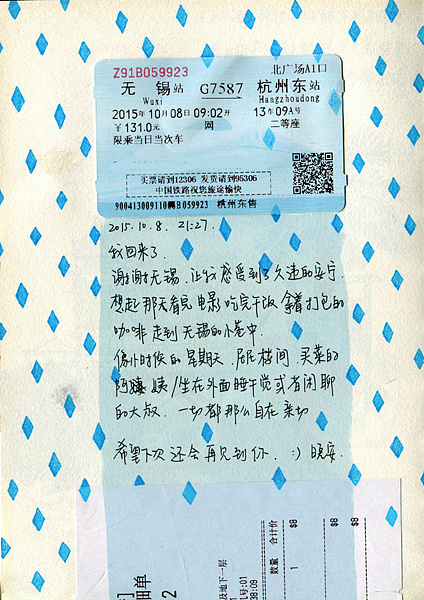 Z91B059923 北广场A1口
无锡站 G7587 杭州东站
Wuxi Hangzhoudong
2015年10月08日09:02开 13车09A号
￥131.0元 网 二等座
限乘当日当次车
买票请到12306 发货请到95306
中国铁路祝您旅途愉快
杭州东售
2015.10.8. 21:27.
我回来了.
谢谢无锡. 让我感受到了久违的安宁
想起那天看完电影吃完午饭拿着打包的
咖啡走到无锡的小巷中.
傍晚时候的星期天. 居民楼间 买菜的
阿姨/坐在外面睡午觉或者闲聊
的大叔. 一切都那么自在亲切
希望下次还会再见到你. :) 晚安.
细单
2
及地下一层
号:01
38:09
数量 合计价
1 $8
$8
$8